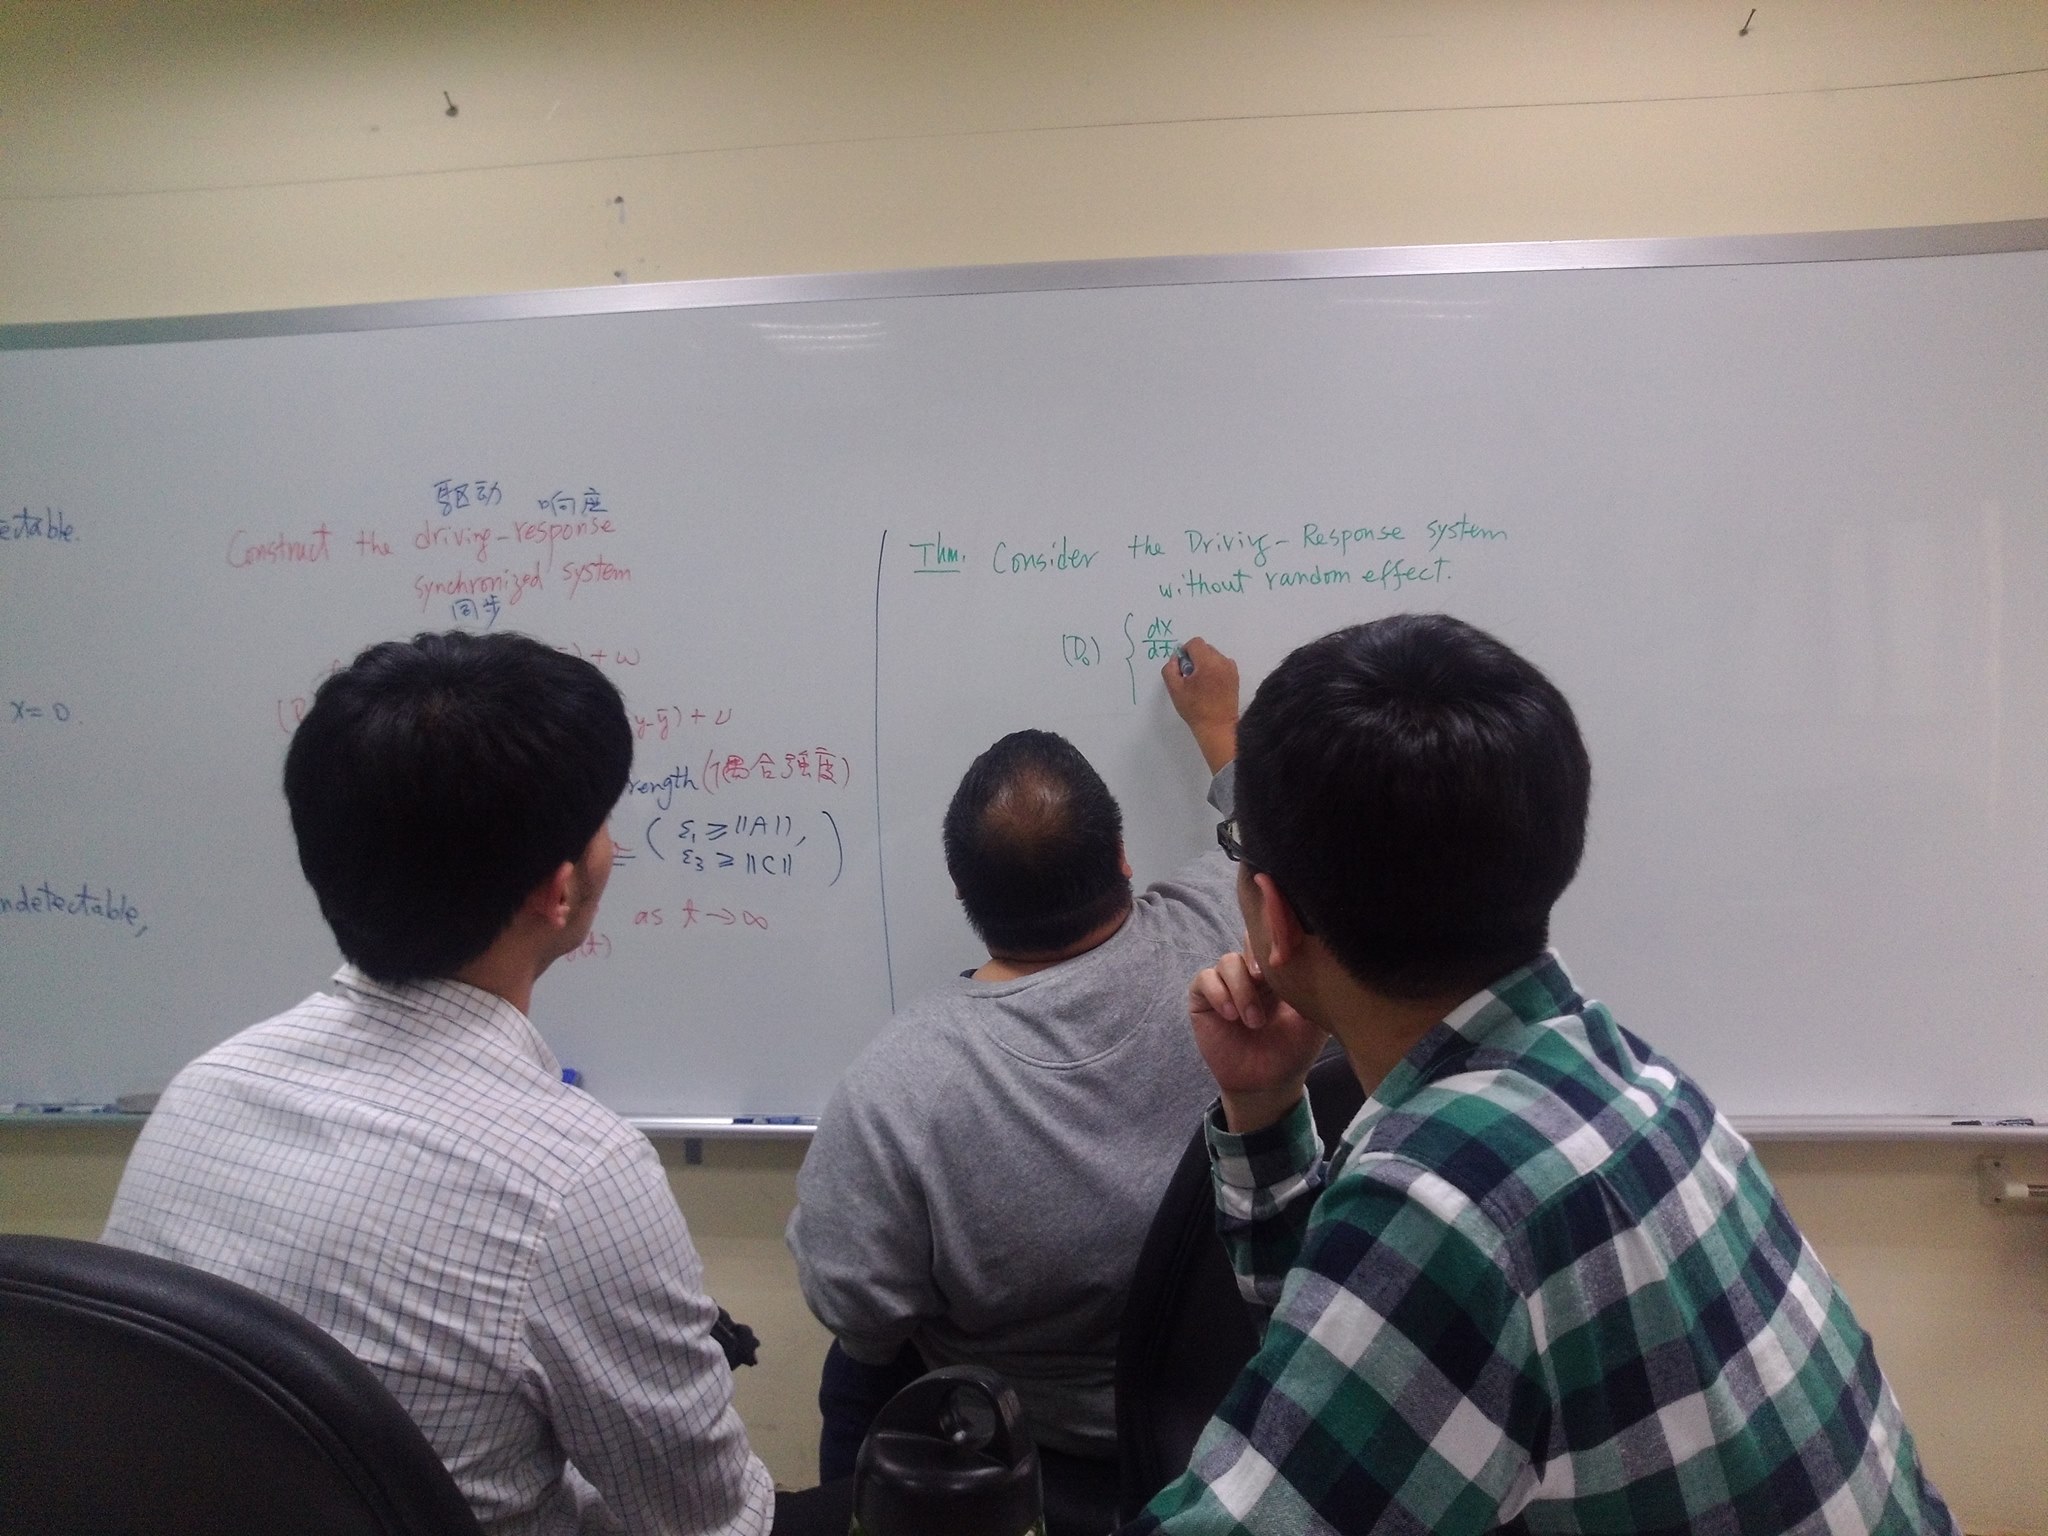 ectable.
x=0.
ndetectable,
驱动 响应
Construct the driving-response
synchronized system
同步
)+ω
(y-ȳ)+ν
rength (耦合強度)
= ( ε₁ ≥ ||A||,
ε₃ ≥ ||C|| )
as t→∞
(t)
Thm. Consider the Driving-Response system
without random effect.
(D₀) { dx
dt